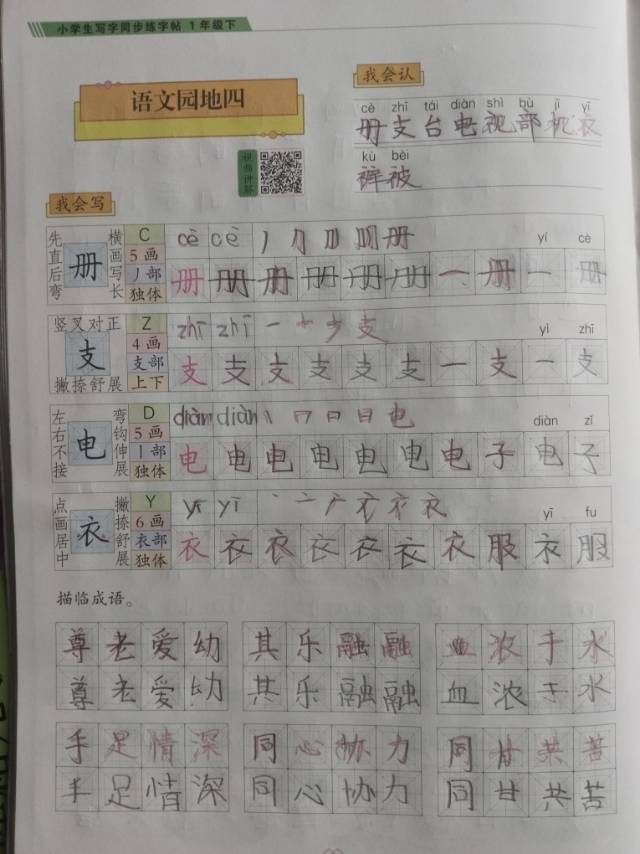 小学生写字同步练字帖 1年级下
语文园地四
视频讲解
我会认
cè zhī tái diàn shì bù jī yī
册支台电视部机衣
kù bèi
裤被
我会写
先直后弯
册
横画写长
C
5画
丿部
独体
cè cè 丿 册
yí cè
册 册 册 册 册 册 一 册 一 册
竖叉对正
支
撇捺舒展
Z
4画
支部
上下
zhī zhī 一 十 支
yì zhī
支 支 支 支 支 支 一 支 一 支
左右不接
电
弯钩伸展
D
5画
丨部
独体
diàn diàn 丨 冂 日 日 电
diàn zǐ
电 电 电 电 电 电 电 子 电 子
点画居中
衣
撇捺舒展
Y
6画
衣部
独体
yī yī 丶 亠 衣
yī fu
衣 衣 衣 衣 衣 衣 衣 服 衣 服
描临成语。
尊老爱幼 其乐融融 血浓于水
尊老爱幼 其乐融融 血浓于水
手足情深 同心协力 同甘共苦
手足情深 同心协力 同甘共苦